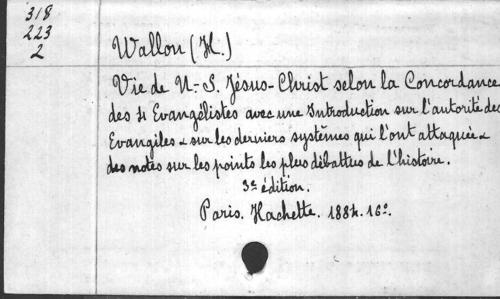 318
223
2
Wallon (H.)
Vie de N.-S. Jésus-Christ selon la Concordance
des 4 Evangélistes avec une Introduction sur l'autorité des
Evangiles & sur les derniers systèmes qui l'ont attaquée &
des notes sur les points les plus débattus de l'histoire.
3e édition.
Paris. Hachette. 1884. 16o.